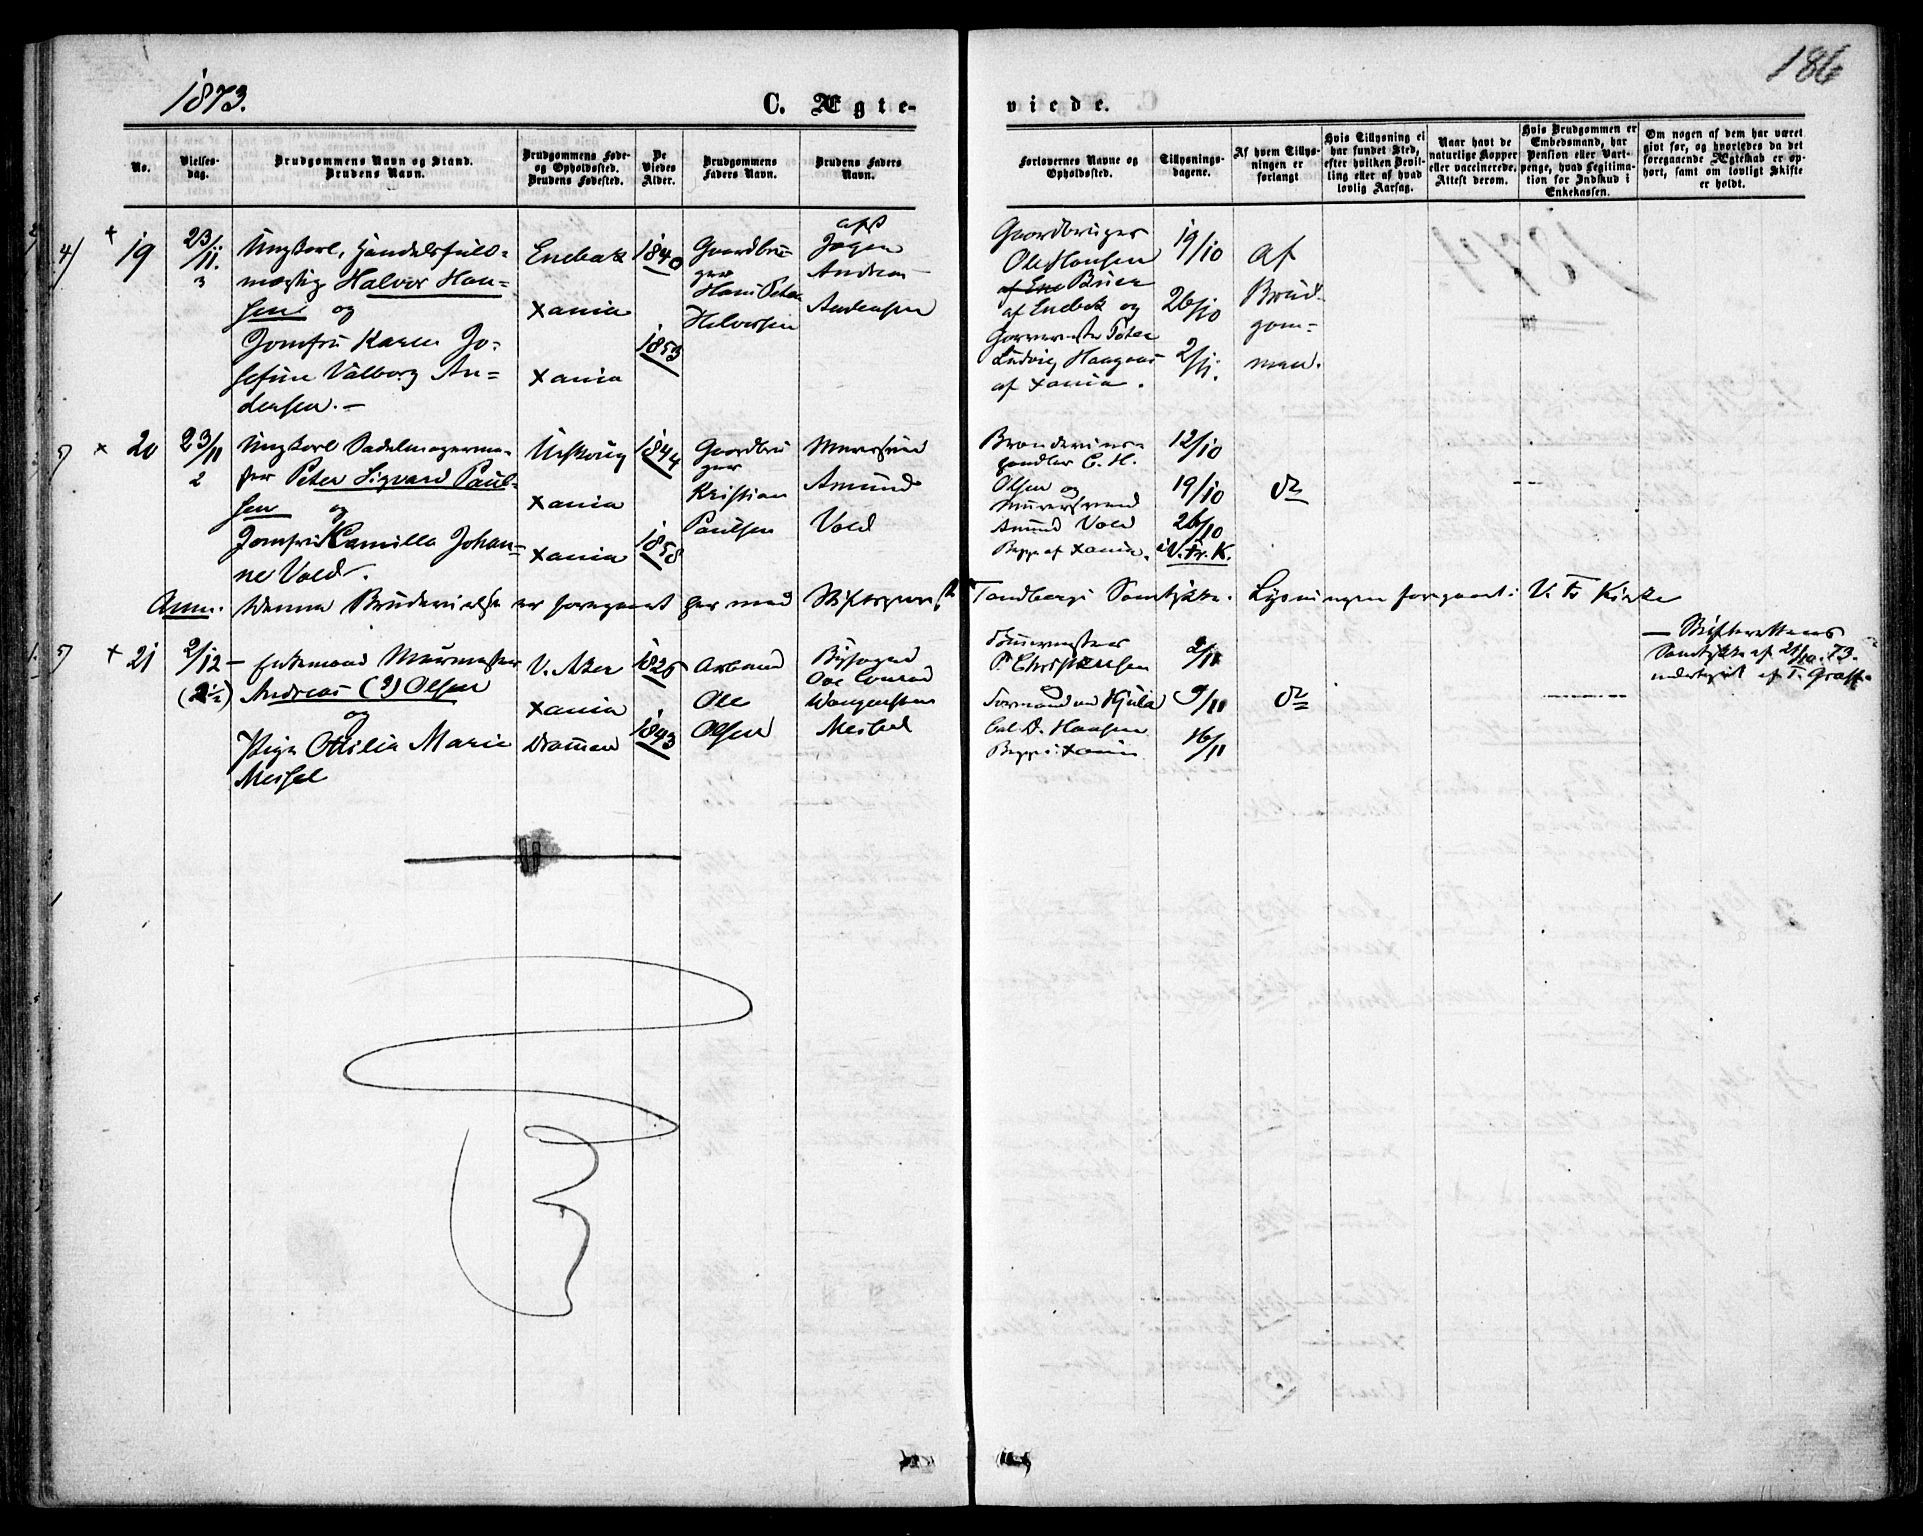 1873.
C. Ægte-
viede.
186
No.
Vielses-
dag.
Brudgommens Navn og Stand.
Brudens Navn.
Brudgommens Føde-
og Opholdssted.
Brudens Fødested.
De
Viedes
Alder.
Brudgommens
Faders Navn.
Brudens Faders
Navn.
Forlovernes Navne og
Opholdssted.
Tillysnings-
dagene.
Af hvem Tillys-
ningen er
forlangt
Hvis Tillysning ei
har fundet Sted,
efter hvilken Bevil-
ling eller af hvad
lovlig Aarsag.
Naar havt de
naturlige Kopper
eller vaccinerede,
Attest derom.
Hvis Brudgommen er
Embedsmand, har
Pension eller Vart-
penge, hvad Legitima-
tion for Indskud i
Enkekassen.
Om nogen af dem har været
givt før, og hvorledes da det
foregaaende Ægteskab er op-
hørt, samt om lovligt Skifte
er holdt.
4) + 19
23/11.
3
Ungkarl, Handelsfuld-
mægtig Halvor Han-
sen og
Jomfru Karen Jo-
sefine Valborg An-
dersen. —
Enebak
Xania
Xania
1840
1853
Gaardbru-
ger
Hans Peter
Halvorsen
Andreas
Andersen
Gaardbruger
Ole Hansen
af Enebak og
Ludvig
af Xania.
19/10
26/10
2/11.
af
Brud-
gom-
men.
5) × 20
23/11
2
Ungkarl Sadelmagerme-
ster Peter Sigvard Paul-
sen og
Jomfru Kamilla Johan-
ne Vold.
Urskoug
Xania
Xania
1844
1858
Gaardbru
ger
Kristian
Paulsen
Murersvend
Amund
Vold
Brændevins-
handler C. H.
Olsen og
Murersvend
Amund Vold
Begge af Xania.
12/10
19/10
26/10
i V. Fr. K.
do
Anm. Denne Brudevielse er foregaaet her med Stiftsprovst
Tandbergs Samtykke. Lysningen foregaaet i V. Fr Kirke
5) + 21
2/12
Enkemand Murmester
Andreas (?) Olsen
og
Pige Ottilia Marie
Meisel
V. Aker
Xania
Drammen
1826
1843
Arbmd
Ole
Olsen
Byfoged
Ove Conrad
Meisel
P. Christensen
og
Formand ved Hjula
Carl D. Hansen
Begge i Xania
2/11
9/11
16/11
do
— Skifterettens
Samtykke af 24/10. 73.
undertegnet af F. Graff.